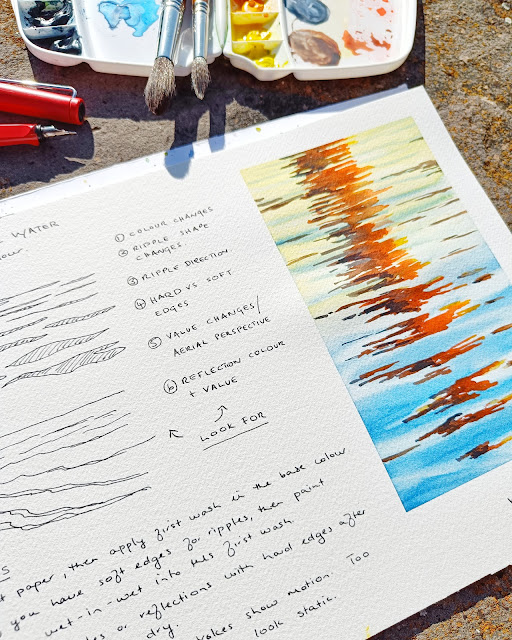 WATER
our
① COLOUR CHANGES
② RIPPLE SHAPE
CHANGES
③ RIPPLE DIRECTION
④ HARD VS SOFT
EDGES
⑤ VALUE CHANGES/
AERIAL PERSPECTIVE
⑥ REFLECTION COLOUR
+ VALUE
LOOK FOR
S
t paper, then apply first wash in the base colour
you have soft edges for ripples, then paint
wet-in-wet into this first wash.
les or reflections with hard edges after
dry.
okes show motion. Too
look static.